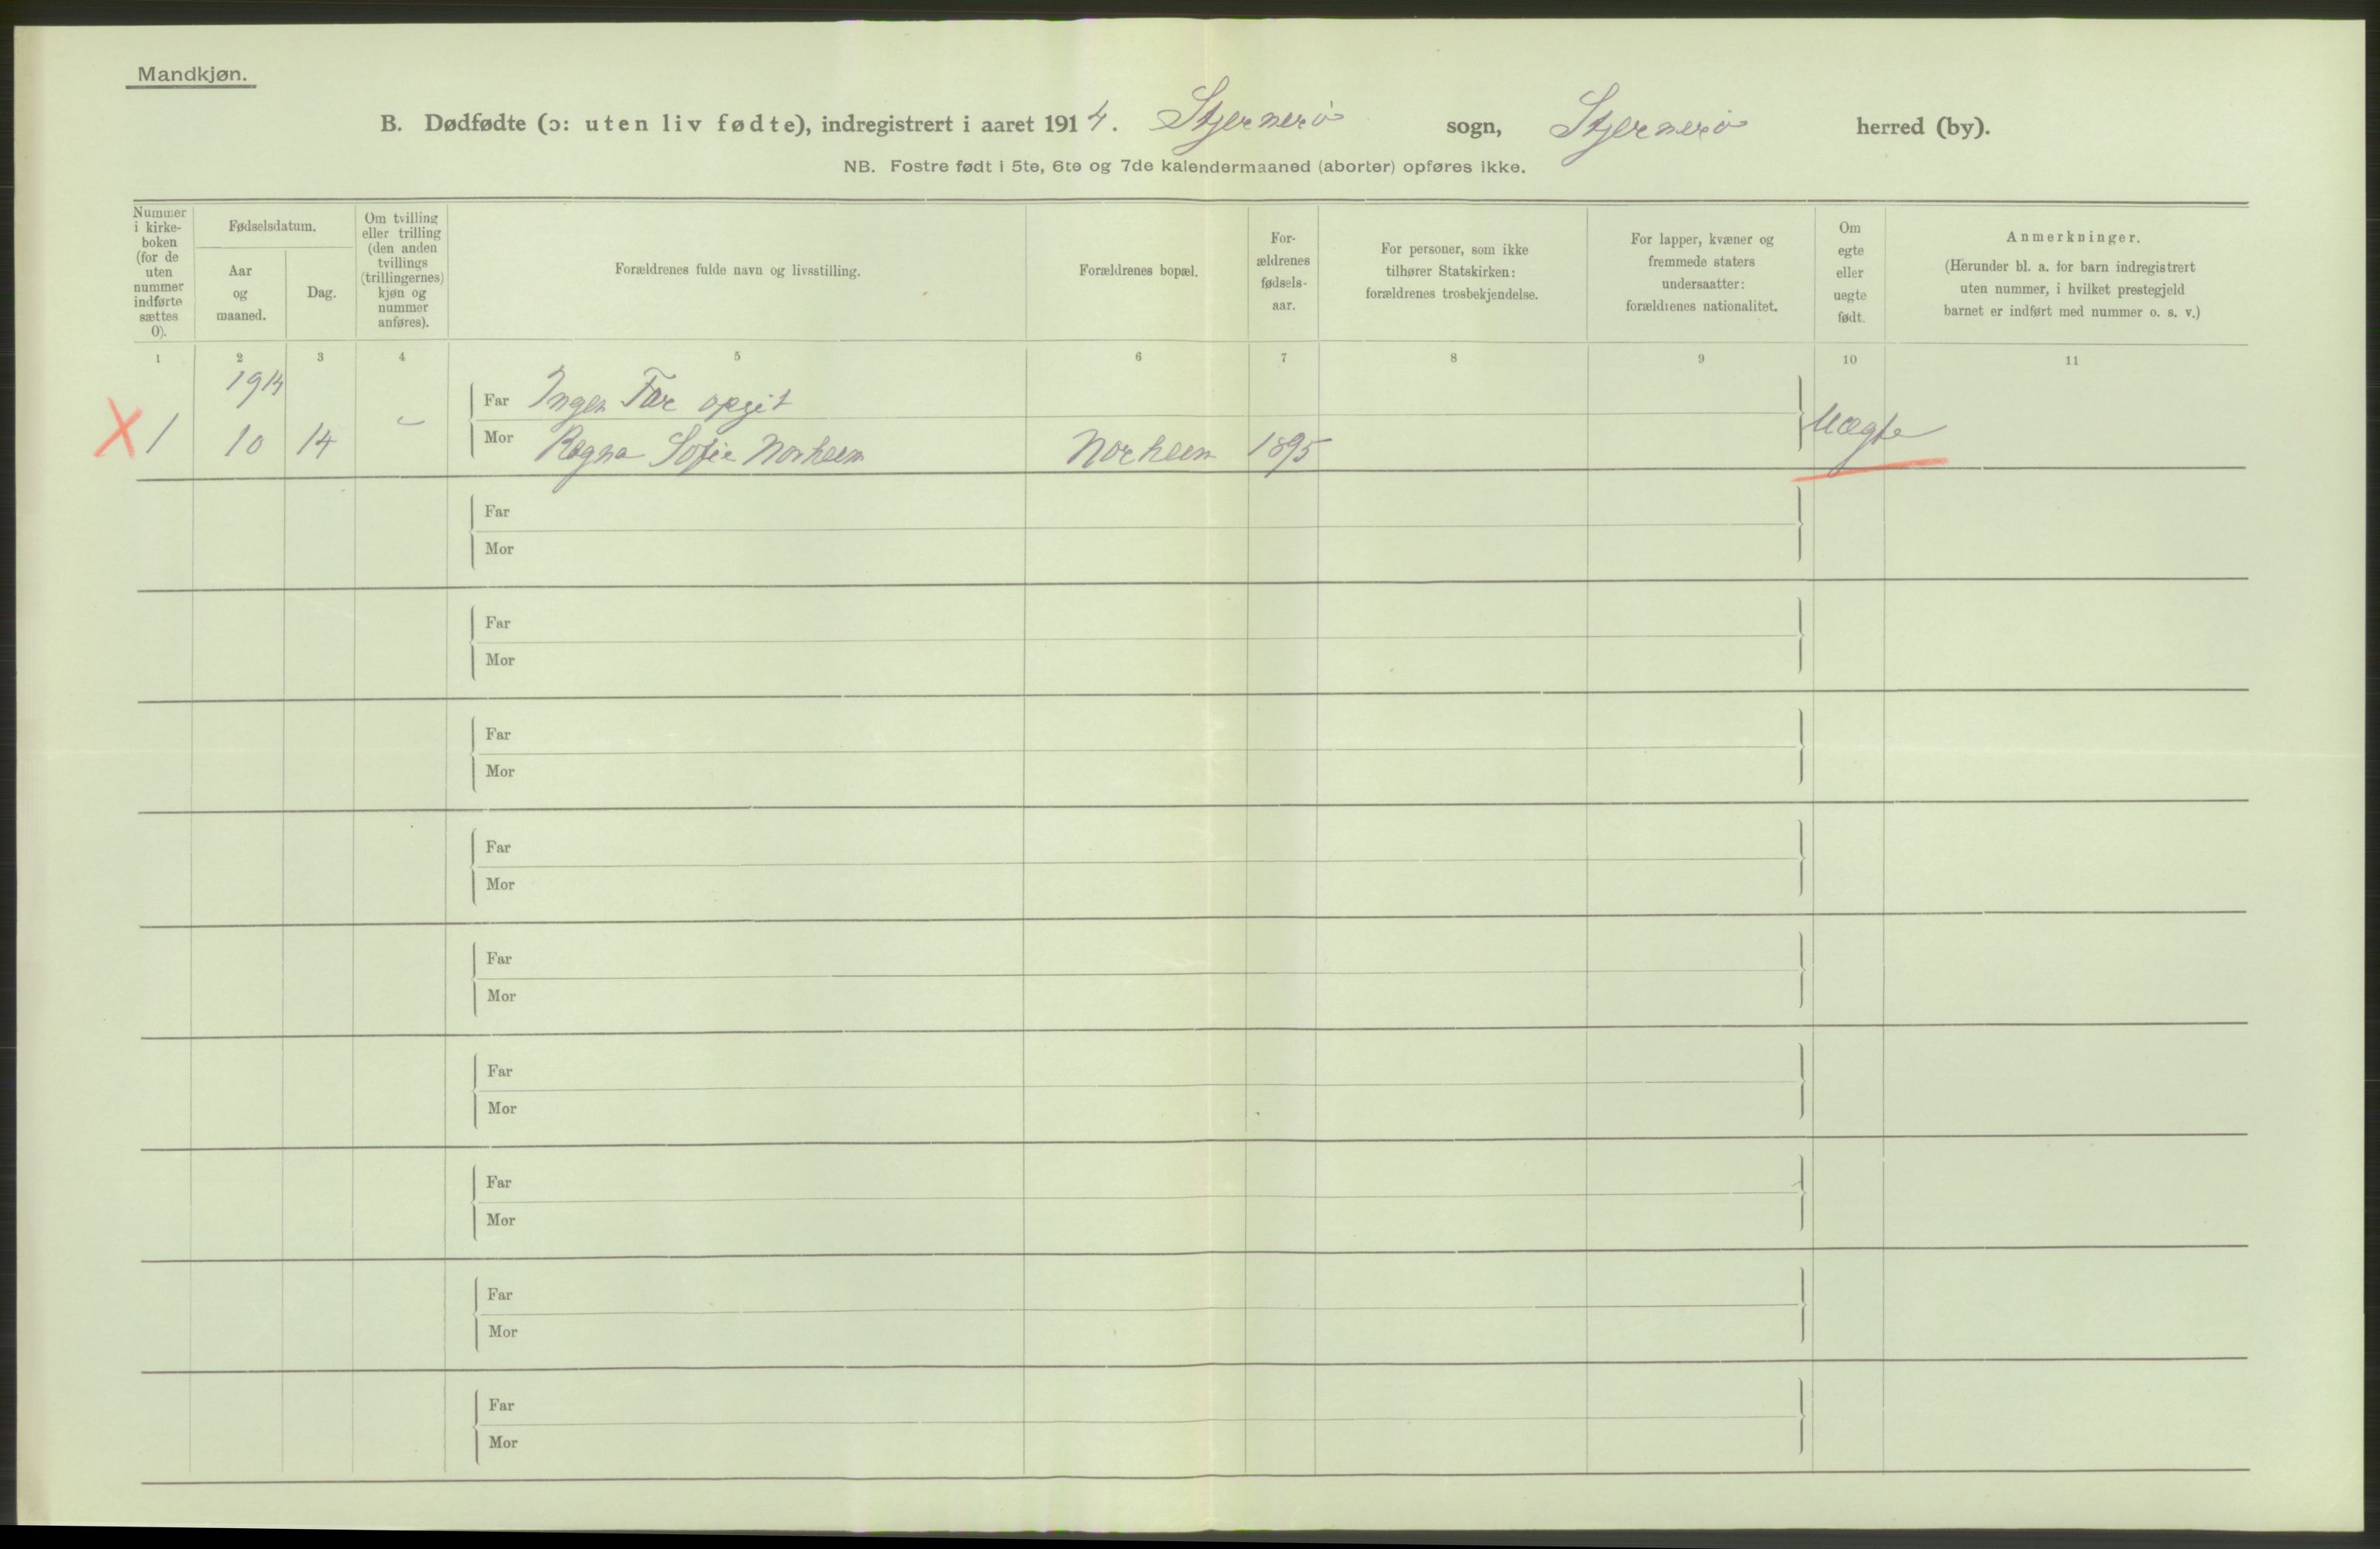 Mandkjøn.
B. Dødfødte (ɔ: uten liv fødte), indregistrert i aaret 1914. Stjernerö sogn, Stjernerö herred (by).
NB. Fostre født i 5te, 6te og 7de kalendermaaned (aborter) opføres ikke.
Nummer
i kirke-
boken
(for de
uten
nummer
indførte
sættes
0).
Fødselsdatum.
Aar
og
maaned.
Dag.
Om tvilling
eller trilling
(den anden
tvillings
(trillingernes)
kjøn og
nummer
anføres).
Forældrenes fulde navn og livsstilling.
Forældrenes bopæl.
For-
ældrenes
fødsels-
aar.
For personer, som ikke
tilhører Statskirken:
forældrenes trosbekjendelse.
For lapper, kvæner og
fremmede staters
undersaatter:
forældrenes nationalitet.
Om
egte
eller
uegte
født.
Anmerkninger.
(Herunder bl. a. for barn indregistrert
uten nummer, i hvilket prestegjeld
barnet er indført med nummer o. s. v.)
1 2 3 4 5 6 7 8 9 10 11
1914
Far Ingen Far opgit
X 1 10 14 - Mor Ragna Sofie Norheim Norheim 1895 Uægte
Far
Mor
Far
Mor
Far
Mor
Far
Mor
Far
Mor
Far
Mor
Far
Mor
Far
Mor
Far
Mor